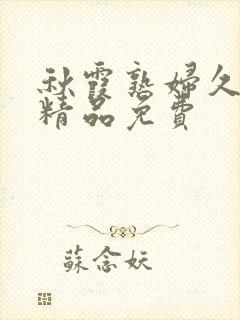 秋霞熟婦久
精品免費
蘇念妖